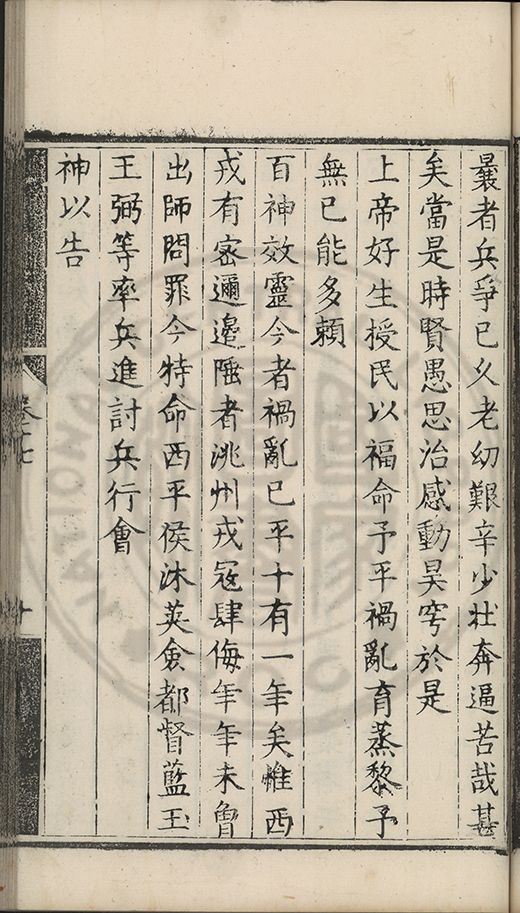 曩者兵爭已久老幼艱辛少壯奔逼苦哉甚
矣當是時賢愚思治感動昊穹於是
上帝好生授民以福命予平禍亂育蒸黎予
無已能多賴
百神效靈今者禍亂已平十有一年矣惟西
戎有密邇邊陲者洮州戎冦肆侮年年未曾
出師問罪今特命西平侯沐英僉都督藍玉
王弼等率兵進討兵行會
神以告